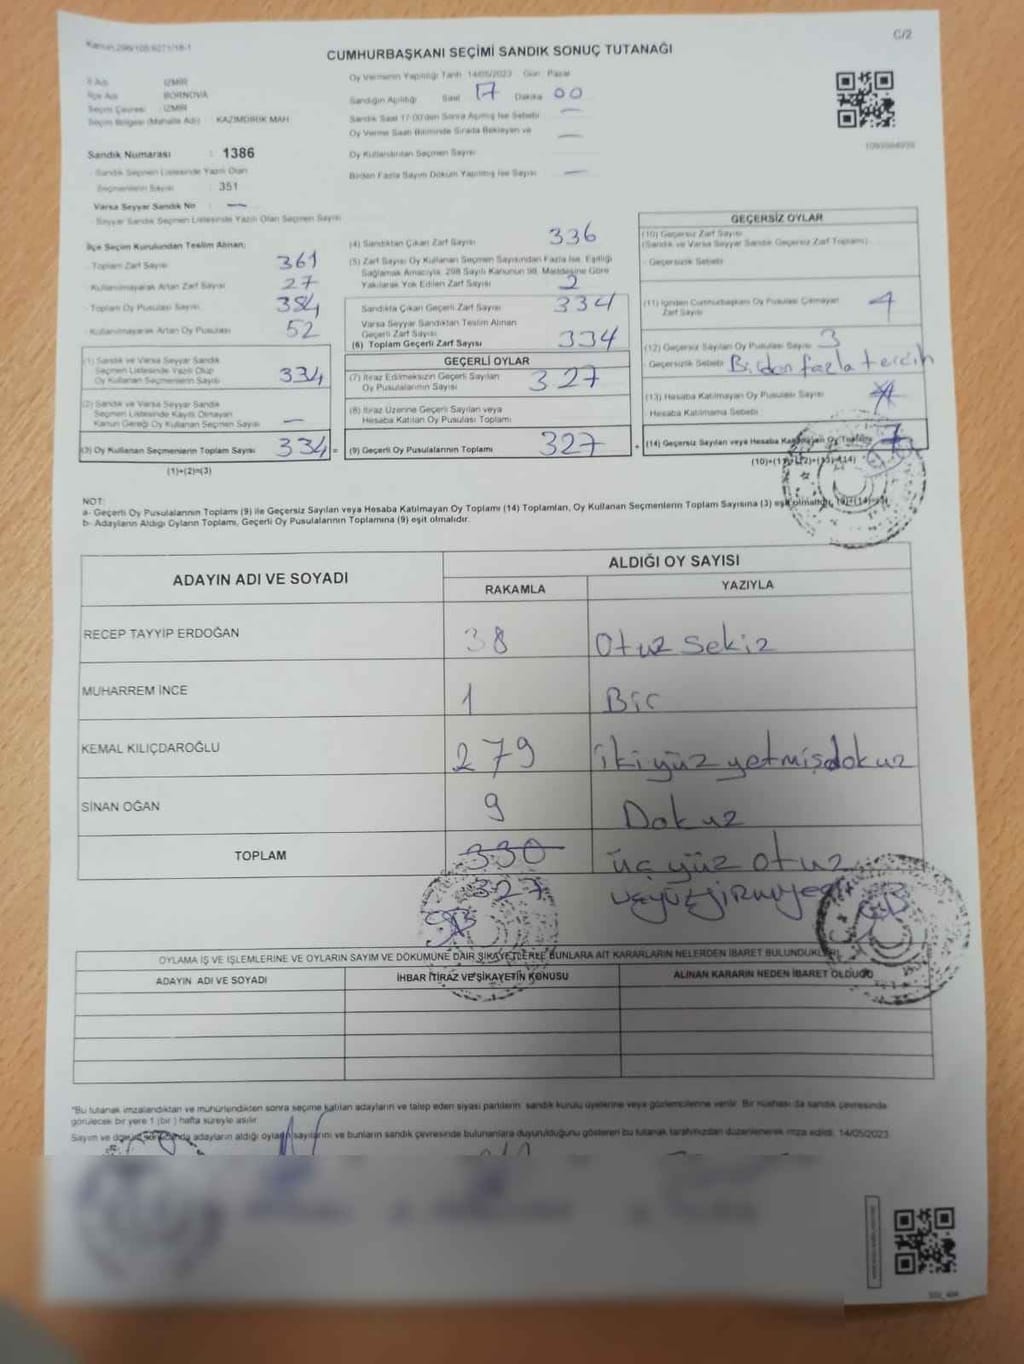 C/2
CUMHURBAŞKANI SEÇİMİ SANDIK SONUÇ TUTANAĞI
İl Adı : İZMİR
İlçe Adı : BORNOVA
Seçim Çevresi : İZMİR
Seçim Bölgesi (Mahalle Adı) : KAZIMDİRİK MAH
Sandık Numarası : 1386
Sandık Seçmen Listesinde Yazılı Olan
Seçmenlerin Sayısı : 351
Varsa Seyyar Sandık No : —
Seyyar Sandık Seçmen Listesinde Yazılı Olan Seçmen Sayısı
Oy Vermenin Yapıldığı Tarih 14/05/2023 Gün Pazar
Sandığın Açıldığı Saat 17 Dakika 00
Sandık Saat 17:00'den Sonra Açılmış İse Sebebi —
Oy Verme Saati Bitiminde Sırada Bekleyen ve —
Oy Kullandırılan Seçmen Sayısı
Birden Fazla Sayım Döküm Yapılmış İse Sayısı —
İlçe Seçim Kurulundan Teslim Alınan;
Toplam Zarf Sayısı 361
Kullanılmayarak Artan Zarf Sayısı 27
Toplam Oy Pusulası Sayısı 384
Kullanılmayarak Artan Oy Pusulası 52
(1) Sandık ve Varsa Seyyar Sandık
Seçmen Listesinde Yazılı Olup
Oy Kullanan Seçmenlerin Sayısı 334
(2) Sandık ve Varsa Seyyar Sandık
Seçmen Listesinde Kayıtlı Olmayan
Kanun Gereği Oy Kullanan Seçmen Sayısı —
(3) Oy Kullanan Seçmenlerin Toplam Sayısı 334 =
(1)+(2)=(3)
(4) Sandıktan Çıkan Zarf Sayısı 336
(5) Zarf Sayısı Oy Kullanan Seçmen Sayısından Fazla İse, Eşitliği
Sağlamak Amacıyla, 298 Sayılı Kanunun 98. Maddesine Göre
Yakılarak Yok Edilen Zarf Sayısı 2
Sandıkta Çıkan Geçerli Zarf Sayısı 334
Varsa Seyyar Sandıktan Teslim Alınan
Geçerli Zarf Sayısı
(6) Toplam Geçerli Zarf Sayısı 334
GEÇERLİ OYLAR
(7) İtiraz Edilmeksizin Geçerli Sayılan
Oy Pusulalarının Sayısı 327
(8) İtiraz Üzerine Geçerli Sayılan veya
Hesaba Katılan Oy Pusulası Toplamı
(9) Geçerli Oy Pusulalarının Toplamı 327 +
GEÇERSİZ OYLAR
(10) Geçersiz Zarf Sayısı
(Sandık ve Varsa Seyyar Sandık Geçersiz Zarf Toplamı)
Geçersizlik Sebebi
(11) İçinden Cumhurbaşkanı Oy Pusulası Çıkmayan
Zarf Sayısı 4
(12) Geçersiz Sayılan Oy Pusulası Sayısı 3
Geçersizlik Sebebi Birden fazla tercih
(13) Hesaba Katılmayan Oy Pusulası Sayısı
Hesaba Katılmama Sebebi
(14) Geçersiz Sayılan veya Hesaba Katılmayan Oy Toplamı 7
(10)+(11)+(12)+(13)=(14)
NOT:
a- Geçerli Oy Pusulalarının Toplamı (9) ile Geçersiz Sayılan veya Hesaba Katılmayan Oy Toplamı (14) Toplamları, Oy Kullanan Seçmenlerin Toplam Sayısına (3) eşit olmalıdır.
b- Adayların Aldığı Oyların Toplamı, Geçerli Oy Pusulalarının Toplamına (9) eşit olmalıdır.
ADAYIN ADI VE SOYADI
ALDIĞI OY SAYISI
RAKAMLA YAZIYLA
RECEP TAYYİP ERDOĞAN 38 Otuz sekiz
MUHARREM İNCE 1 Bir
KEMAL KILIÇDAROĞLU 279 ikiyüz yetmişdokuz
SİNAN OĞAN 9 Dokuz
TOPLAM 330 üç yüz otuz
327 üçyüzyirmiyedi
OYLAMA İŞ VE İŞLEMLERİNE VE OYLARIN SAYIM VE DÖKÜMÜNE DAİR ŞİKAYETLERLE BUNLARA AİT KARARLARIN NELERDEN İBARET BULUNDUKLERİ
ADAYIN ADI VE SOYADI İHBAR İTİRAZ VE ŞİKAYETİN KONUSU ALINAN KARARIN NEDEN İBARET OLDUĞU
"Bu tutanak imzalandıktan ve mühürlendikten sonra seçime katılan adayların ve talep eden siyasi partilerin sandık kurulu üyelerine veya gözlemcilerine verilir. Bir nüshası da sandık çevresinde
görülecek bir yere 1 (bir) hafta süreyle asılır.
Sayım ve döküm sonucunda adayların aldığı oyların sayılarını ve bunların sandık çevresinde bulunanlara duyurulduğunu gösteren bu tutanak tarafımızdan düzenlenerek imza edildi. 14/05/2023